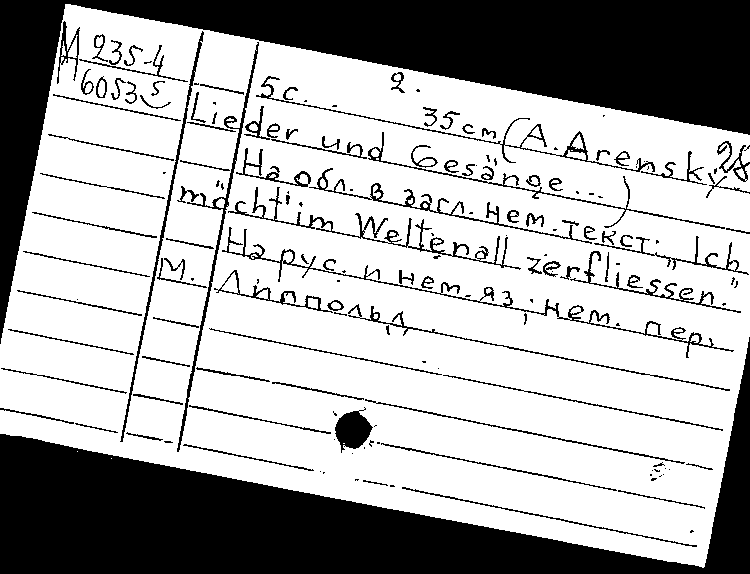 М 235-4
6053⁵
2.
28
5с. . 35см (A. Arensky
Lieder und Gesänge...)
На обл. в загл. нем. текст: „Ich
möcht' im Weltenall zerfliessen."
На рус. и нем. яз; нем. пер.
М. Липпольд.